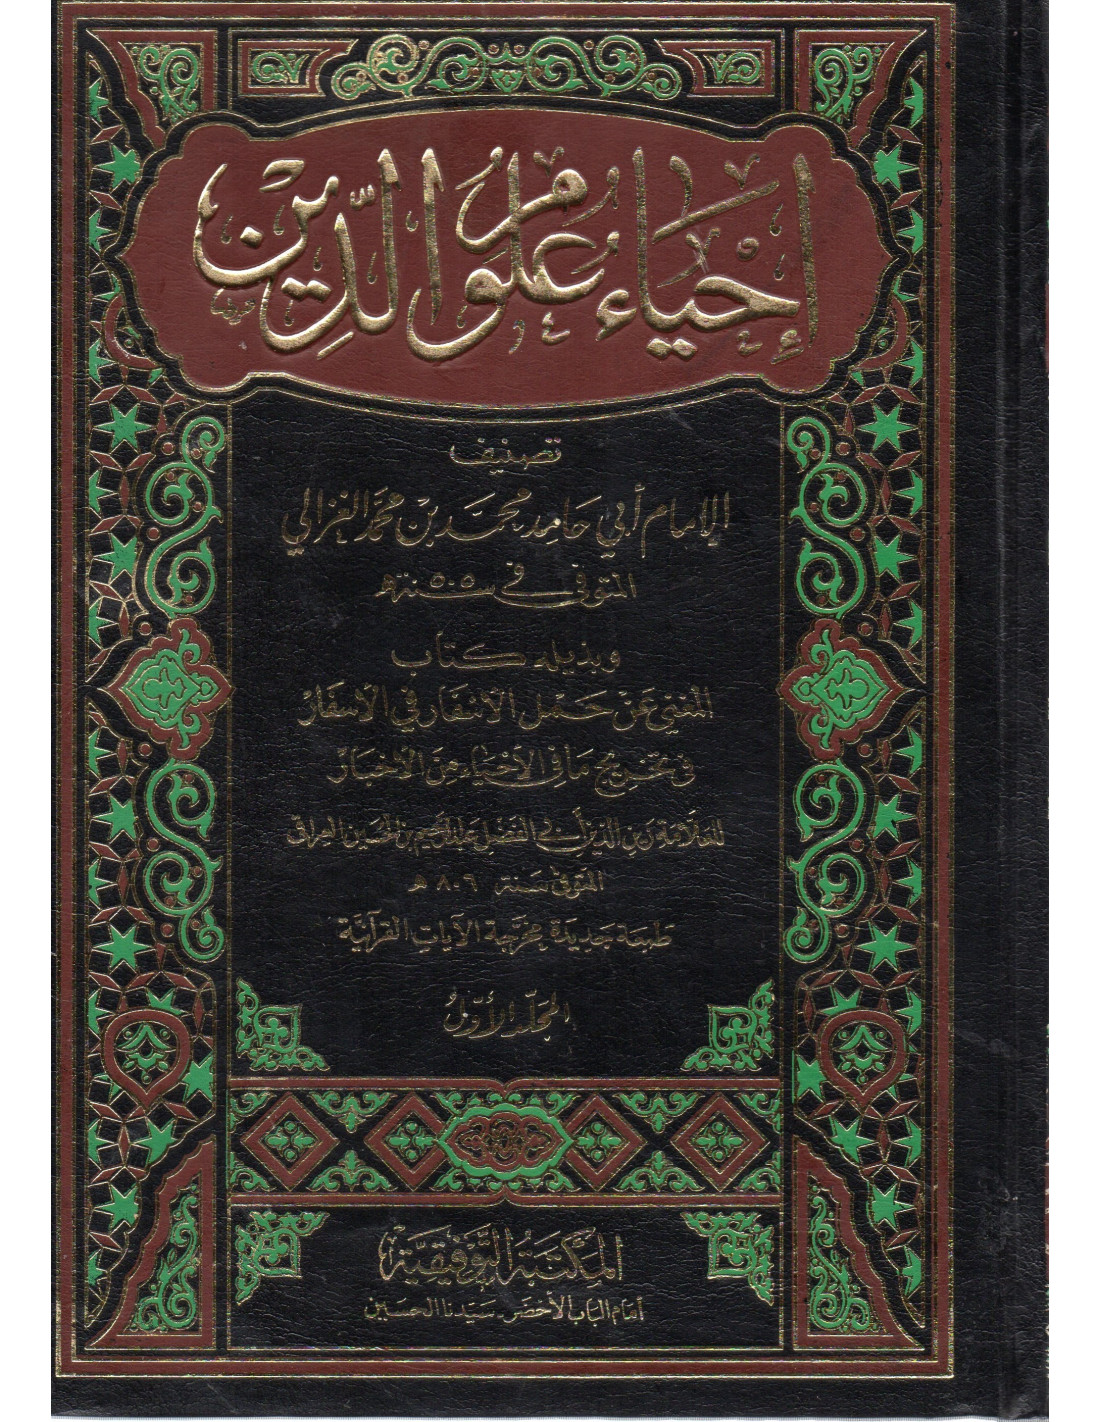 إحياء علوم الدين
تصنيف
الإمام أبي حامد محمد بن محمد الغزالي
المتوفى في سنة ٥٠٥ هـ
وبذيله كتاب
المغني عن حمل الأسفار في الأسفار
في تخريج ما في الإحياء من الأخبار
للعلامة زين الدين أبي الفضل عبد الرحيم بن الحسين العراقي
المتوفى سنة ٨٠٦ هـ
طبعة جديدة مخرجة الآيات القرآنية
المجلد الأول
المكتبة التوفيقية
أمام الباب الأخضر - سيدنا الحسين